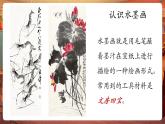 认识水墨画
水墨画就是用毛笔蘸
着墨汁在宣纸上进行
描绘的一种绘画形式，
常用到的工具材料是
文房四宝。